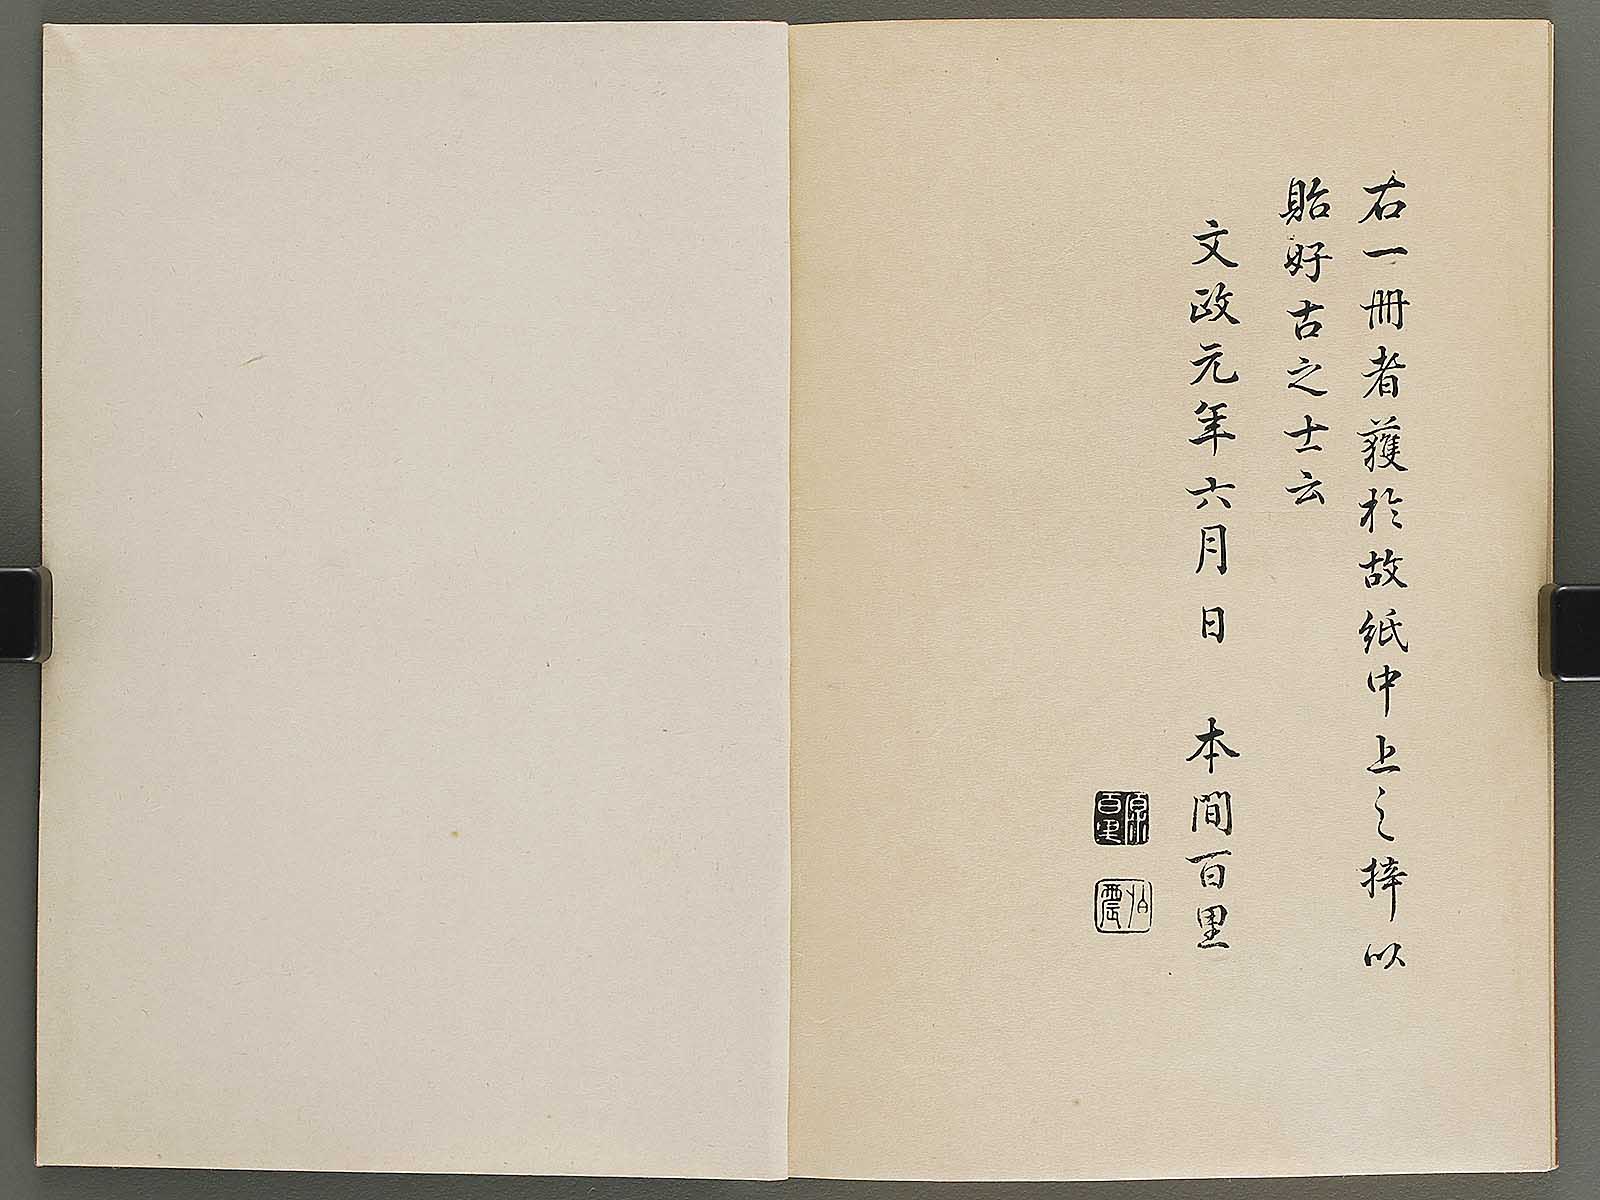 右一冊者獲於故紙中上之梓以
貽好古之士云
文政元年六月日 本間百里
源百里